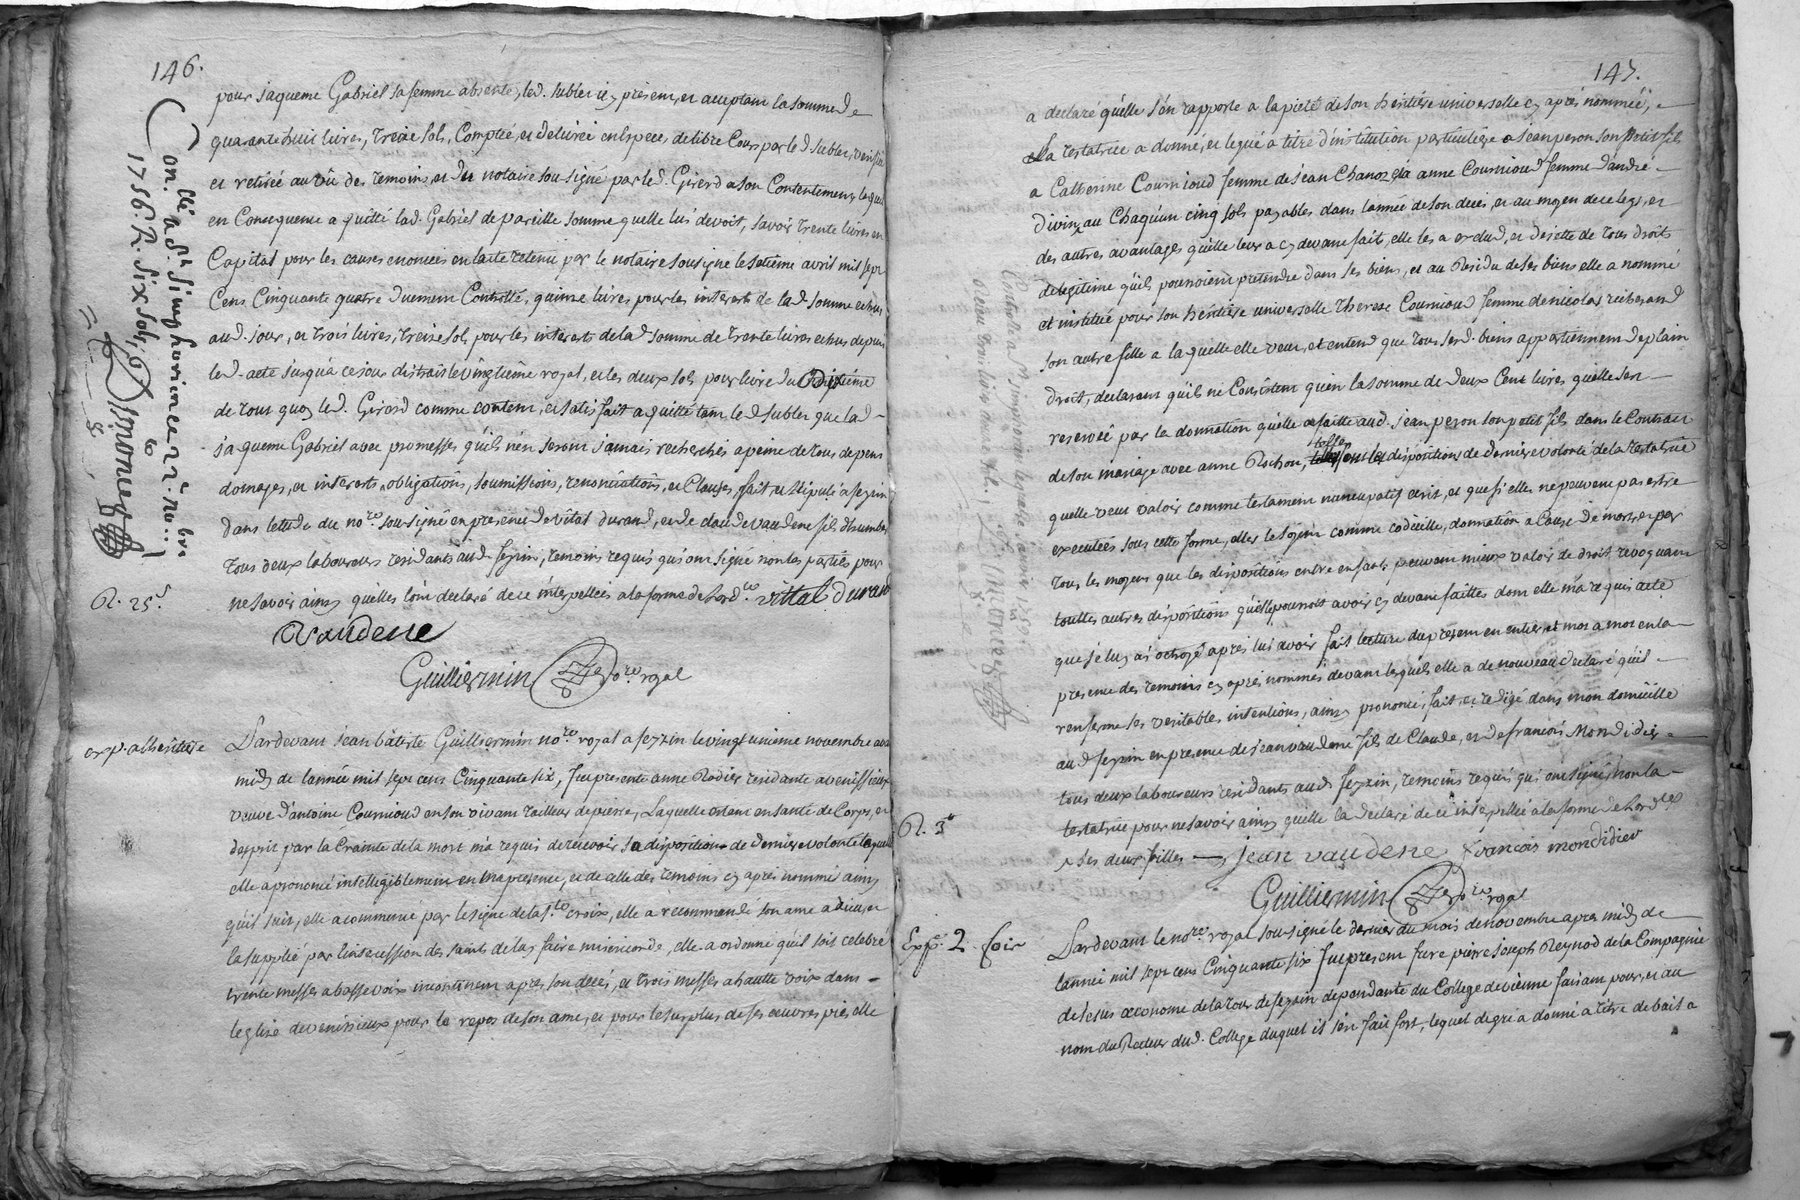 146.
pour jaqueme Gabriel sa femme absente, led. sublet icy présent, et acceptant la somme de
quarante huit livres, treize sols, Comptée, et délivrée en Especes de libre Cours par led sublet,
et retirée au vû des temoins, et du notaire soussigné par led. Girerd a son Contentement, lequel
en Consequence a quitté lad. Gabriel de pareille somme quelle lui devoit, savoir trente livres en
Capital pour les causes enoncées en lacte retenu par le notaire soussigné le setieme avril mil sept
Cens Cinquante quatre duement Controllé, quinze livres pour les interets de lad somme echus
aud. jour, et trois livres, treize sols, pour les interets de lad somme de trente livres echus depuis
led. acte jusqu'a ce jour distrait le vingtieme royal, et les deux sols pour livre du dixieme
de tout quoy led. Girerd comme content, et satisfait a quitté tant led sublet que lad
jaqueme Gabriel avec promesses qu'ils n'en seront jamais recherchés a peine de tous depens
domages, et interets, obligations, soumissions, renonciations, et Clauses, fait, et stipulé a feyzin
dans letude du nore. soussigné en presence de vital durand, et de claude vaudene fils d'humbert
tous deux laboureurs residants aud. feyzin, temoins requis qui ont signé non les parties pour
ne savoir ainsy quelles l'ont declaré de ce interpellées a la forme de lord.ce vital durand
vaudene
Guilliermin nore. royal
R. 25s
on. Clé a St. Simphorien ce 22e. No.bre
1756. R. six sols,
Simonet
exp. a lheritiere
Pardevant jean bâtiste Guilliermin nore. royal a feyzin le vingt unieme novembre avant
midy de lannée mil sept cens Cinquante six, fut presente anne Rodier residante a venissieux
veuve d'antoine Cournioud en son vivant tailleur de pierre, Laquelle etant en santé de Corps, et
desprit par la Crainte de la mort m'a requis de recevoir sa disposition de derniere volonté laquelle
elle a prononcé intelligiblement en ma presence, et de celle des temoins cy apres nommés ainsy
qu'il suit, elle a commencé par le signe de la ste. croix, elle a recommandé son ame a dieu, et
la supplié par l'intercession des saints de luy faire misericorde, elle a ordonné qu'il soit celebré
trente messes a basse voix incontinent apres son decés, et trois messes a hautte voix dans
leglise de venissieux pour le repos de son ame, et pour le surplus de ses oeuvres pies, elle
147.
a declaré qu'elle s'en rapporte a la pieté de son héritière universelle cy après nommée,
la testatrice a donné, et legué a titre d'institution particulière a jean peron son petit fils
a Catherine Cournioud femme de jean Chanoz, et a anne Cournioud femme d'andré
divin, au Chaqu'un cinq sols payables dans lannée de son decés, et au moyen de ce legs, et
des autres avantages qu'elle leur a cy devant fait, elle les a exclud, et dejetté de tous droits
de legitime qu'ils pourroient pretendre dans ses biens, et au Residu de ses biens elle a nommé
et institué pour son héritière universelle Therese Cournioud femme de nicolas
son autre fille a laquelle elle veut, et entend que tous sesd. biens appartiennent de plain
droit, declarant qu'ils ne Consistent qu'en la somme de deux Cent livres qu'elle s'en
reservée par la donnation qu'elle a faitte aud. jean peron son petit fils dans le Contrat
de son mariage avec anne Rochon, dispositions de derniere volonté de la testatrice
quelle veut valoir comme testament nuncupatif ecrit, et que si elles ne peuvent pas estre
executées sous cette forme, elles le soyent comme codicille, donnation a Cause de mort, et par
tous les moyens que les dispositions entre enfants peuvent mieux valoir de droit revoquant
touttes autres dispositions qu'elle pourroit avoir cy devant faittes dont elle m'a requis acte
que je luy ai octroyé après lui avoir fait lecture du présent en entier, et mot a mot en la
presence des temoins cy après nommés devant lesquels elle a de nouveau declaré qu'il
renferme ses veritables intentions, ainsy prononcé, fait, et redigé dans mon domicille
aud feyzin en presence de jean vaudene fils de Claude, et de francois Mondidier
tous deux laboureurs residants aud feyzin, temoins requis qui ont signés, non la
testatrice pour ne savoir ainsy quelle la declaré de ce interpellée a la forme de lord.ce
x ses deux filles jean vaudene francois mondidier
Guilliermin nore. royal
R. 3#
Exp. 2. foir
Pardevant le nore. royal soussigné le dernier du mois de novembre après midy de
lannée mil sept cens Cinquante six fut present frere pierre joseph Reynod de la Compagnie
de jesus oeconome de la tour de feyzin dependante du College de vienne faisant pour, et au
nom du Recteur dud. College duquel il s'en fait fort, lequel de gré a donné a titre de bail a